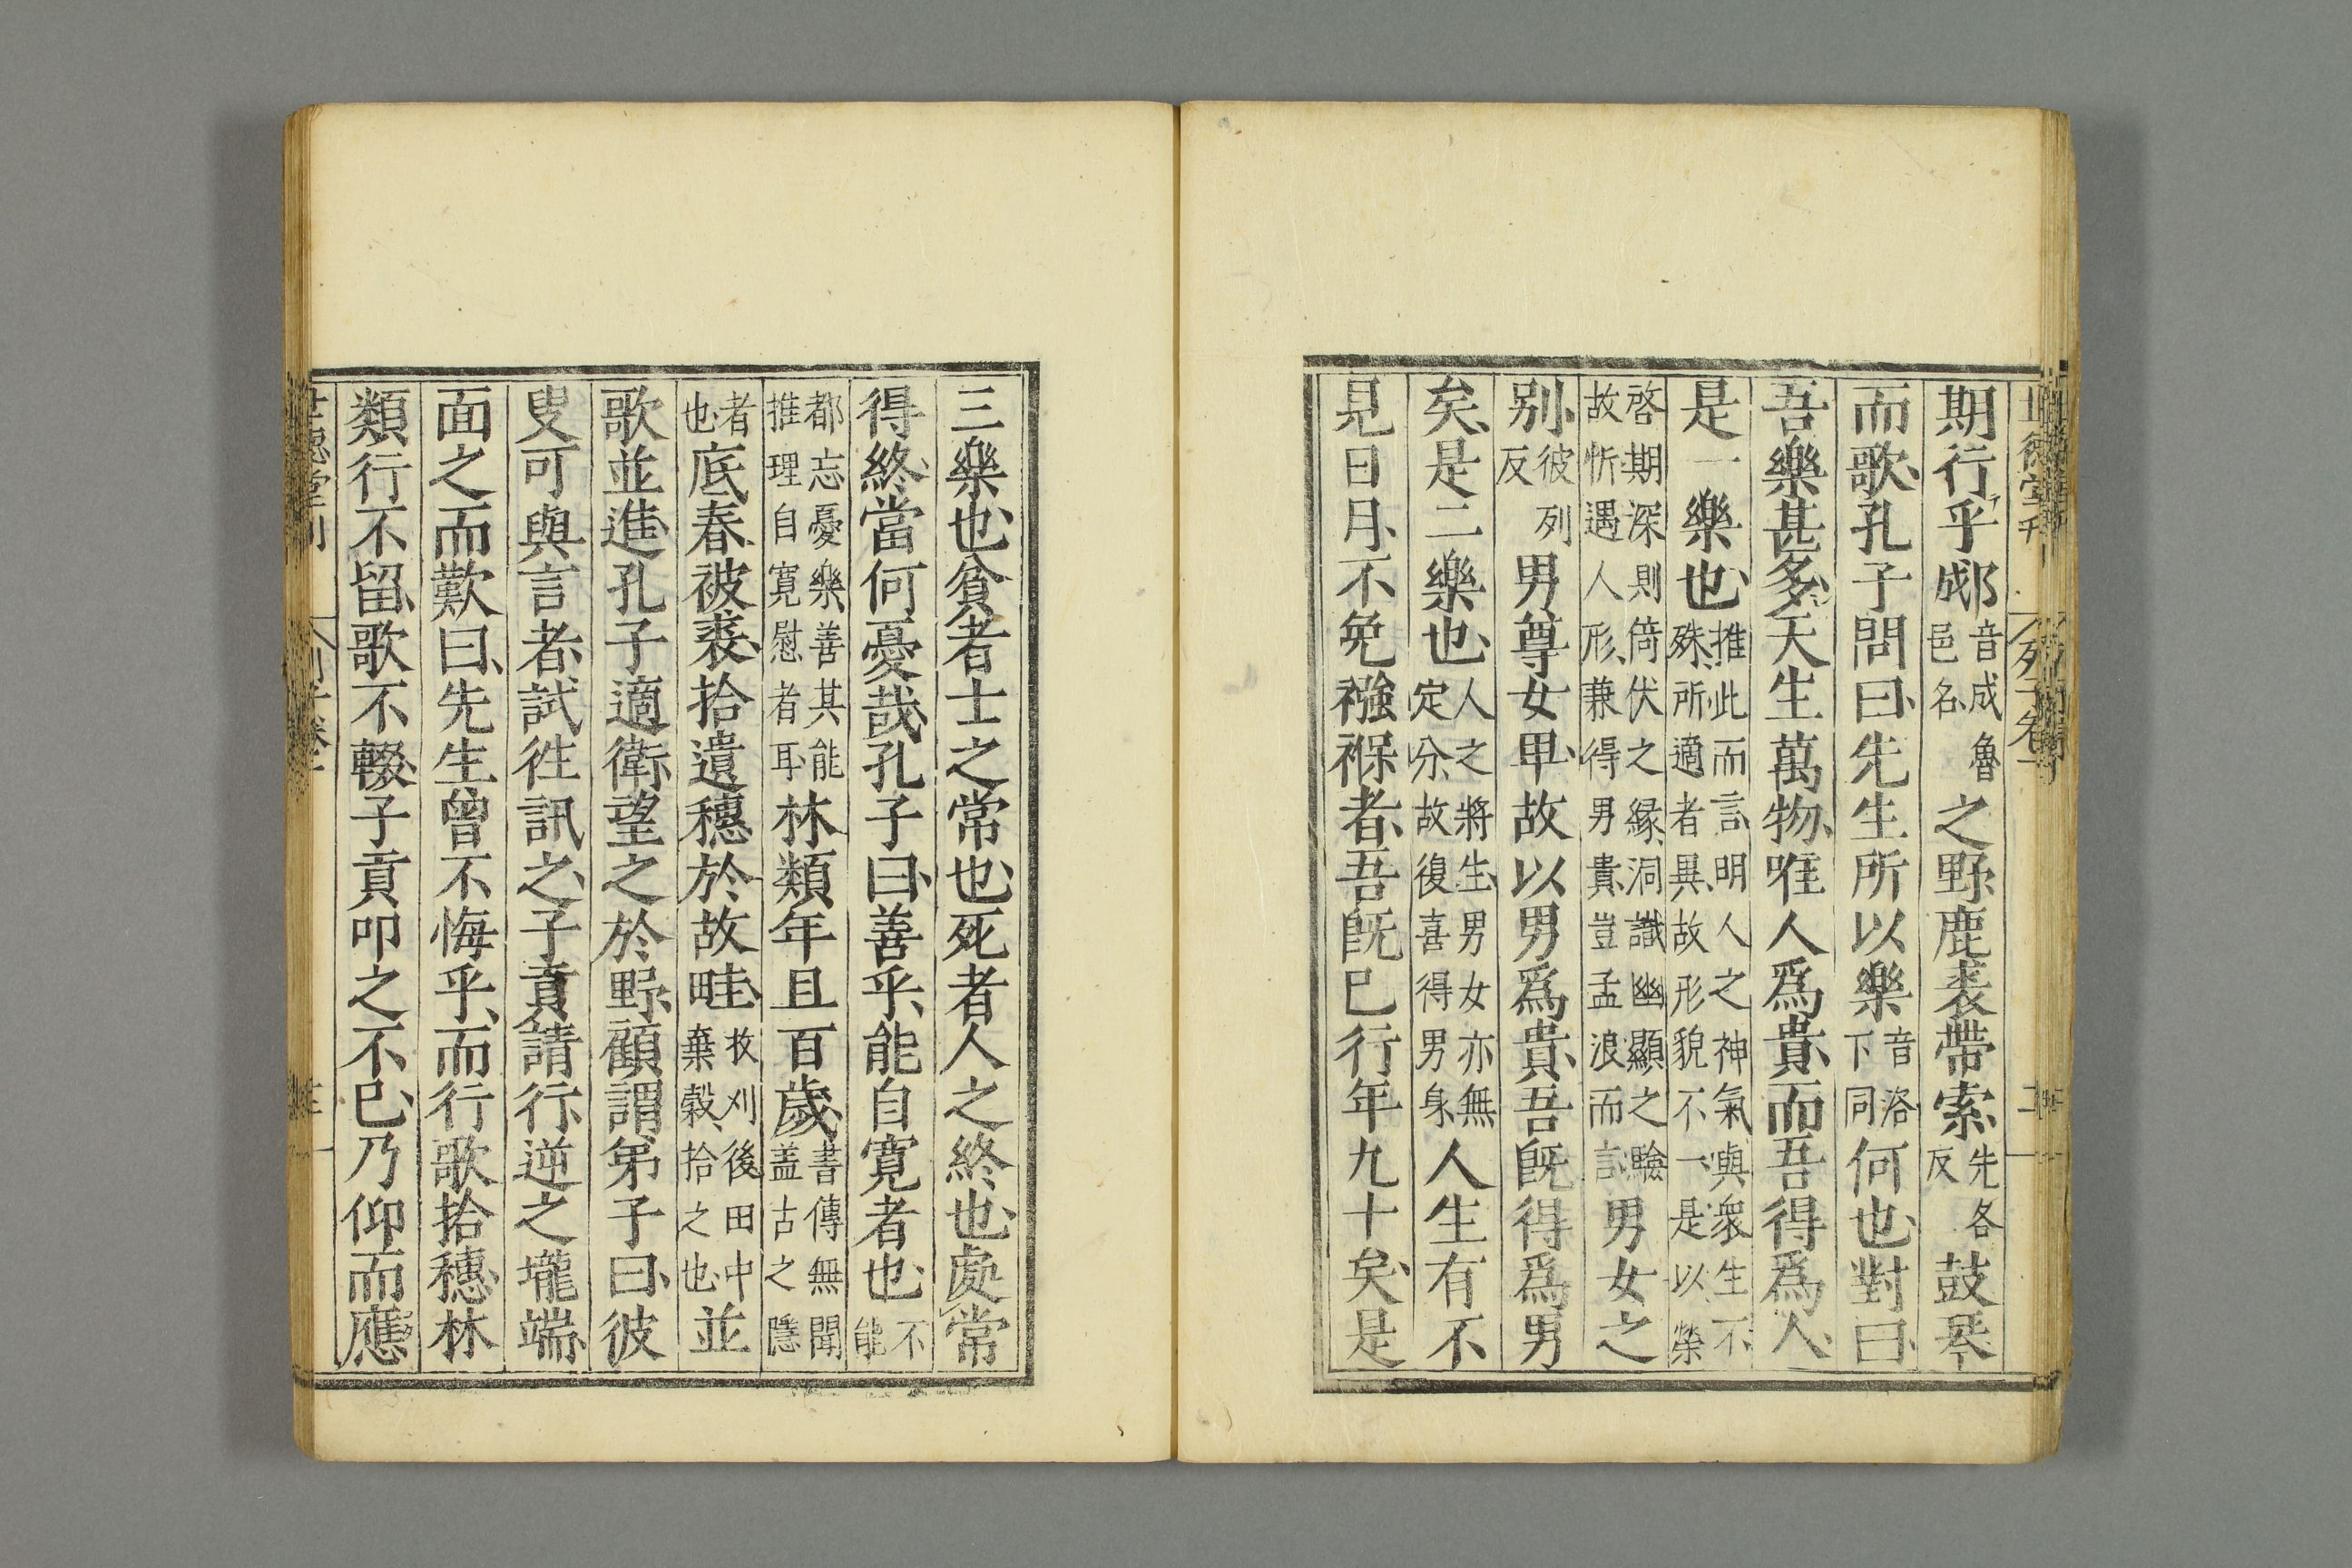 期行乎郕音成魯邑名之野鹿裘帶索先各反鼓琴
而歌孔子問曰先生所以樂音洛下同何也對曰
吾樂甚多天生萬物唯人爲貴而吾得爲人
是一樂也推此而言明人之神氣與衆生不殊所適者異故形貌不一是以榮
啓期深測倚伏之縁洞識幽顯之驗故忻遇人形兼得男貴豈孟浪而言男女之
别彼列反男尊女卑故以男爲貴吾旣得爲男
矣是二樂也人之將生男女亦無定分故復喜得男身人生有不
見日月不免襁褓者吾旣已行年九十矣是
三樂也貧者士之常也死者人之終也處常
得終當何憂哉孔子曰善乎能自寬者也不能
都忘憂樂善其能推理自寬慰者耳林類年且百歲書傳無聞蓋古之隱
者也底春被裘拾遺穗於故畦收刈後田中棄穀拾之也並
歌並進孔子適衛望之於野顧謂弟子曰彼
叟可與言者試徃訊之子貢請行逆之壠端
面之而歎曰先生曾不悔乎而行歌拾穗林
類行不留歌不輟子貢叩之不已乃仰而應